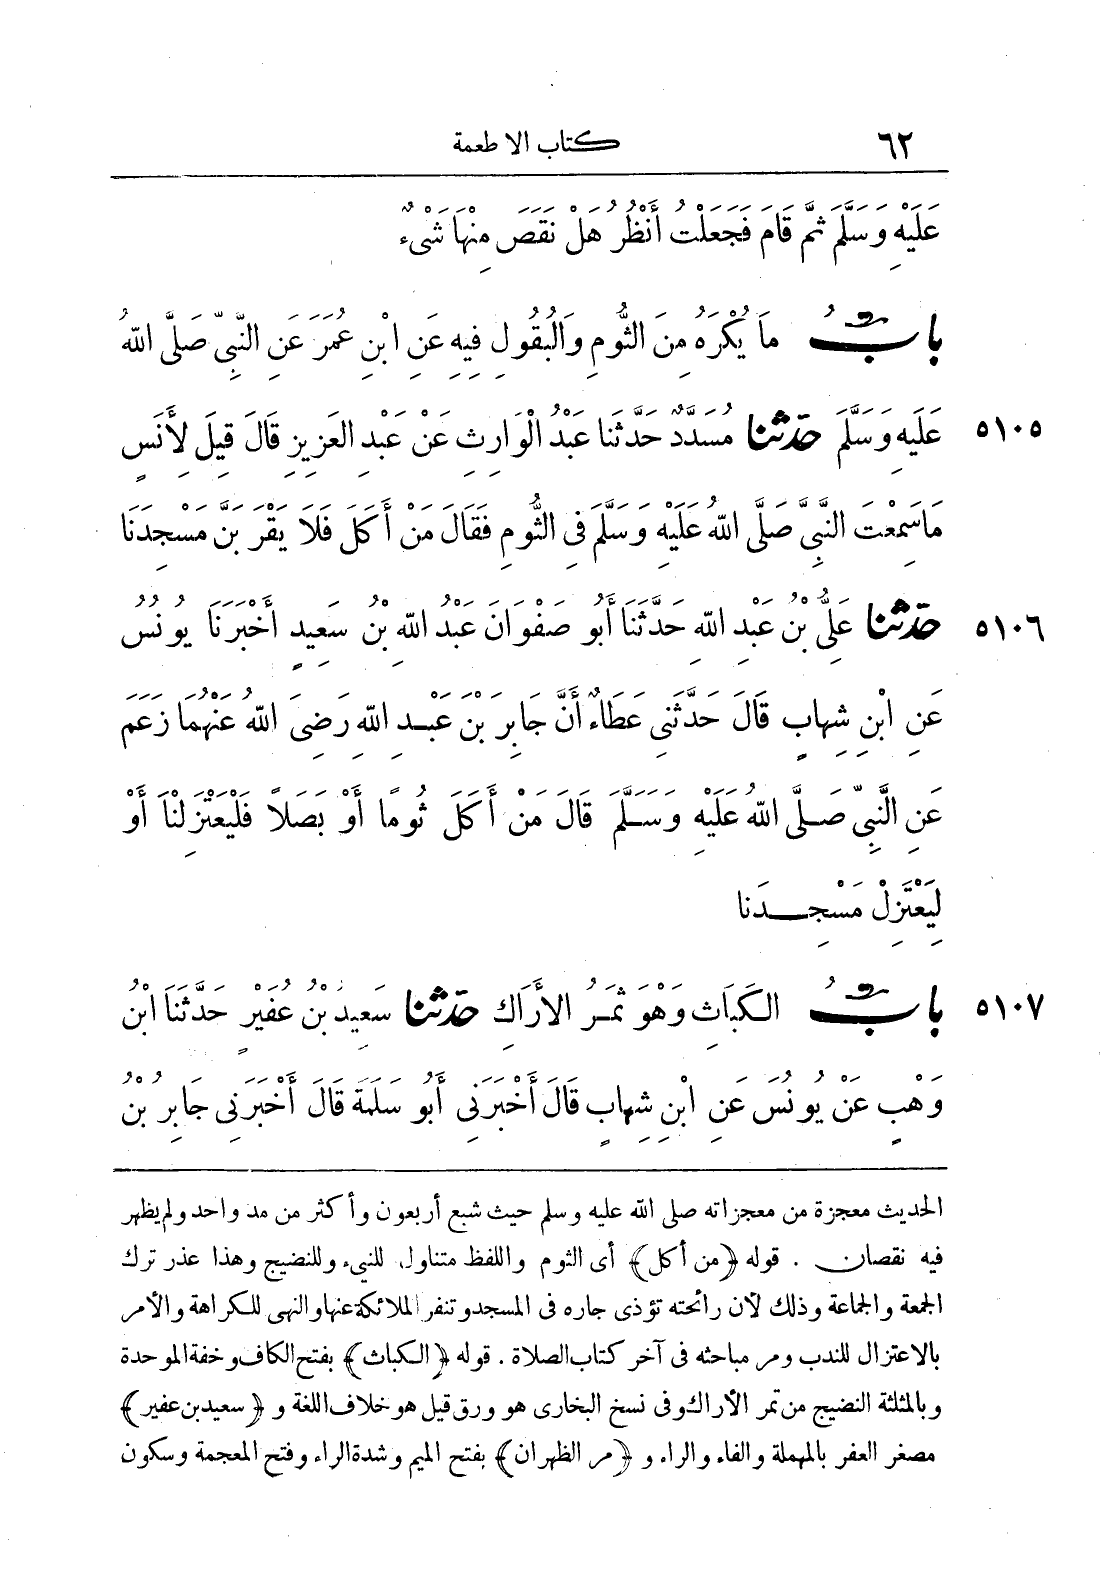 ٦٢ كتاب الاطعمة
عَلَيْهِ وَسَلَّمَ ثُمَّ قَامَ فَجَعَلْتُ أَنْظُرُ هَلْ نَقَصَ مِنْهَا شَيْءٌ
بابُ مَا يُكْرَهُ مِنَ الثُّومِ وَالْبُقُولِ فِيهِ عَنِ ابْنِ عُمَرَ عَنِ النَّبِيِّ صَلَّى اللهُ
٥١٠٥ عَلَيْهِ وَسَلَّمَ حَدَّثَنَا مُسَدَّدٌ حَدَّثَنَا عَبْدُ الْوَارِثِ عَنْ عَبْدِ العَزِيزِ قَالَ قِيلَ لِأَنَسٍ
مَا سَمِعْتَ النَّبِيَّ صَلَّى اللهُ عَلَيْهِ وَسَلَّمَ فِى الثُّومِ فَقَالَ مَنْ أَكَلَ فَلَا يَقْرَبَنَّ مَسْجِدَنَا
٥١٠٦ حَدَّثَنَا عَلِيُّ بْنُ عَبْدِ اللهِ حَدَّثَنَا أَبُو صَفْوَانَ عَبْدُ اللهِ بْنُ سَعِيدٍ أَخْبَرَنَا يُونُسُ
عَنِ ابْنِ شِهَابٍ قَالَ حَدَّثَنِى عَطَاءٌ أَنَّ جَابِرَ بْنَ عَبْدِ اللهِ رَضِىَ اللهُ عَنْهُمَا زَعَمَ
عَنِ النَّبِيِّ صَلَّى اللهُ عَلَيْهِ وَسَلَّمَ قَالَ مَنْ أَكَلَ ثُومًا أَوْ بَصَلًا فَلْيَعْتَزِلْنَا أَوْ
لِيَعْتَزِلْ مَسْجِدَنَا
٥١٠٧ بابُ الكَبَاثِ وَهْوَ ثَمَرُ الأَرَاكِ حَدَّثَنَا سَعِيدُ بْنُ عُفَيْرٍ حَدَّثَنَا ابْنُ
وَهْبٍ عَنْ يُونُسَ عَنِ ابْنِ شِهَابٍ قَالَ أَخْبَرَنِى أَبُو سَلَمَةَ قَالَ أَخْبَرَنِى جَابِرُ بْنُ
الحديث معجزة من معجزاته صلى الله عليه وسلم حيث شبع أربعون وأكثر من مد واحد ولم يظهر
فيه نقصان . قوله ﴿من أكل﴾ أى الثوم واللفظ متناول للنىء وللنضيج وهذا عذر ترك
الجمعة والجماعة وذلك لأن رائحته تؤذى جاره فى المسجد وتنفر الملائكة عنها والنهى للكراهة والأمر
بالاعتزال للندب ومر مباحثه فى آخر كتاب الصلاة . قوله ﴿الكباث﴾ بفتح الكاف وخفة الموحدة
وبالمثلثة النضيج من تمر الأراك وفى نسخ البخارى هو ورق قيل هو خلاف اللغة و ﴿سعيد بن عفير﴾
مصغر العفر بالمهملة والفاء والراء و ﴿مر الظهران﴾ بفتح الميم وشدة الراء وفتح المعجمة وسكون